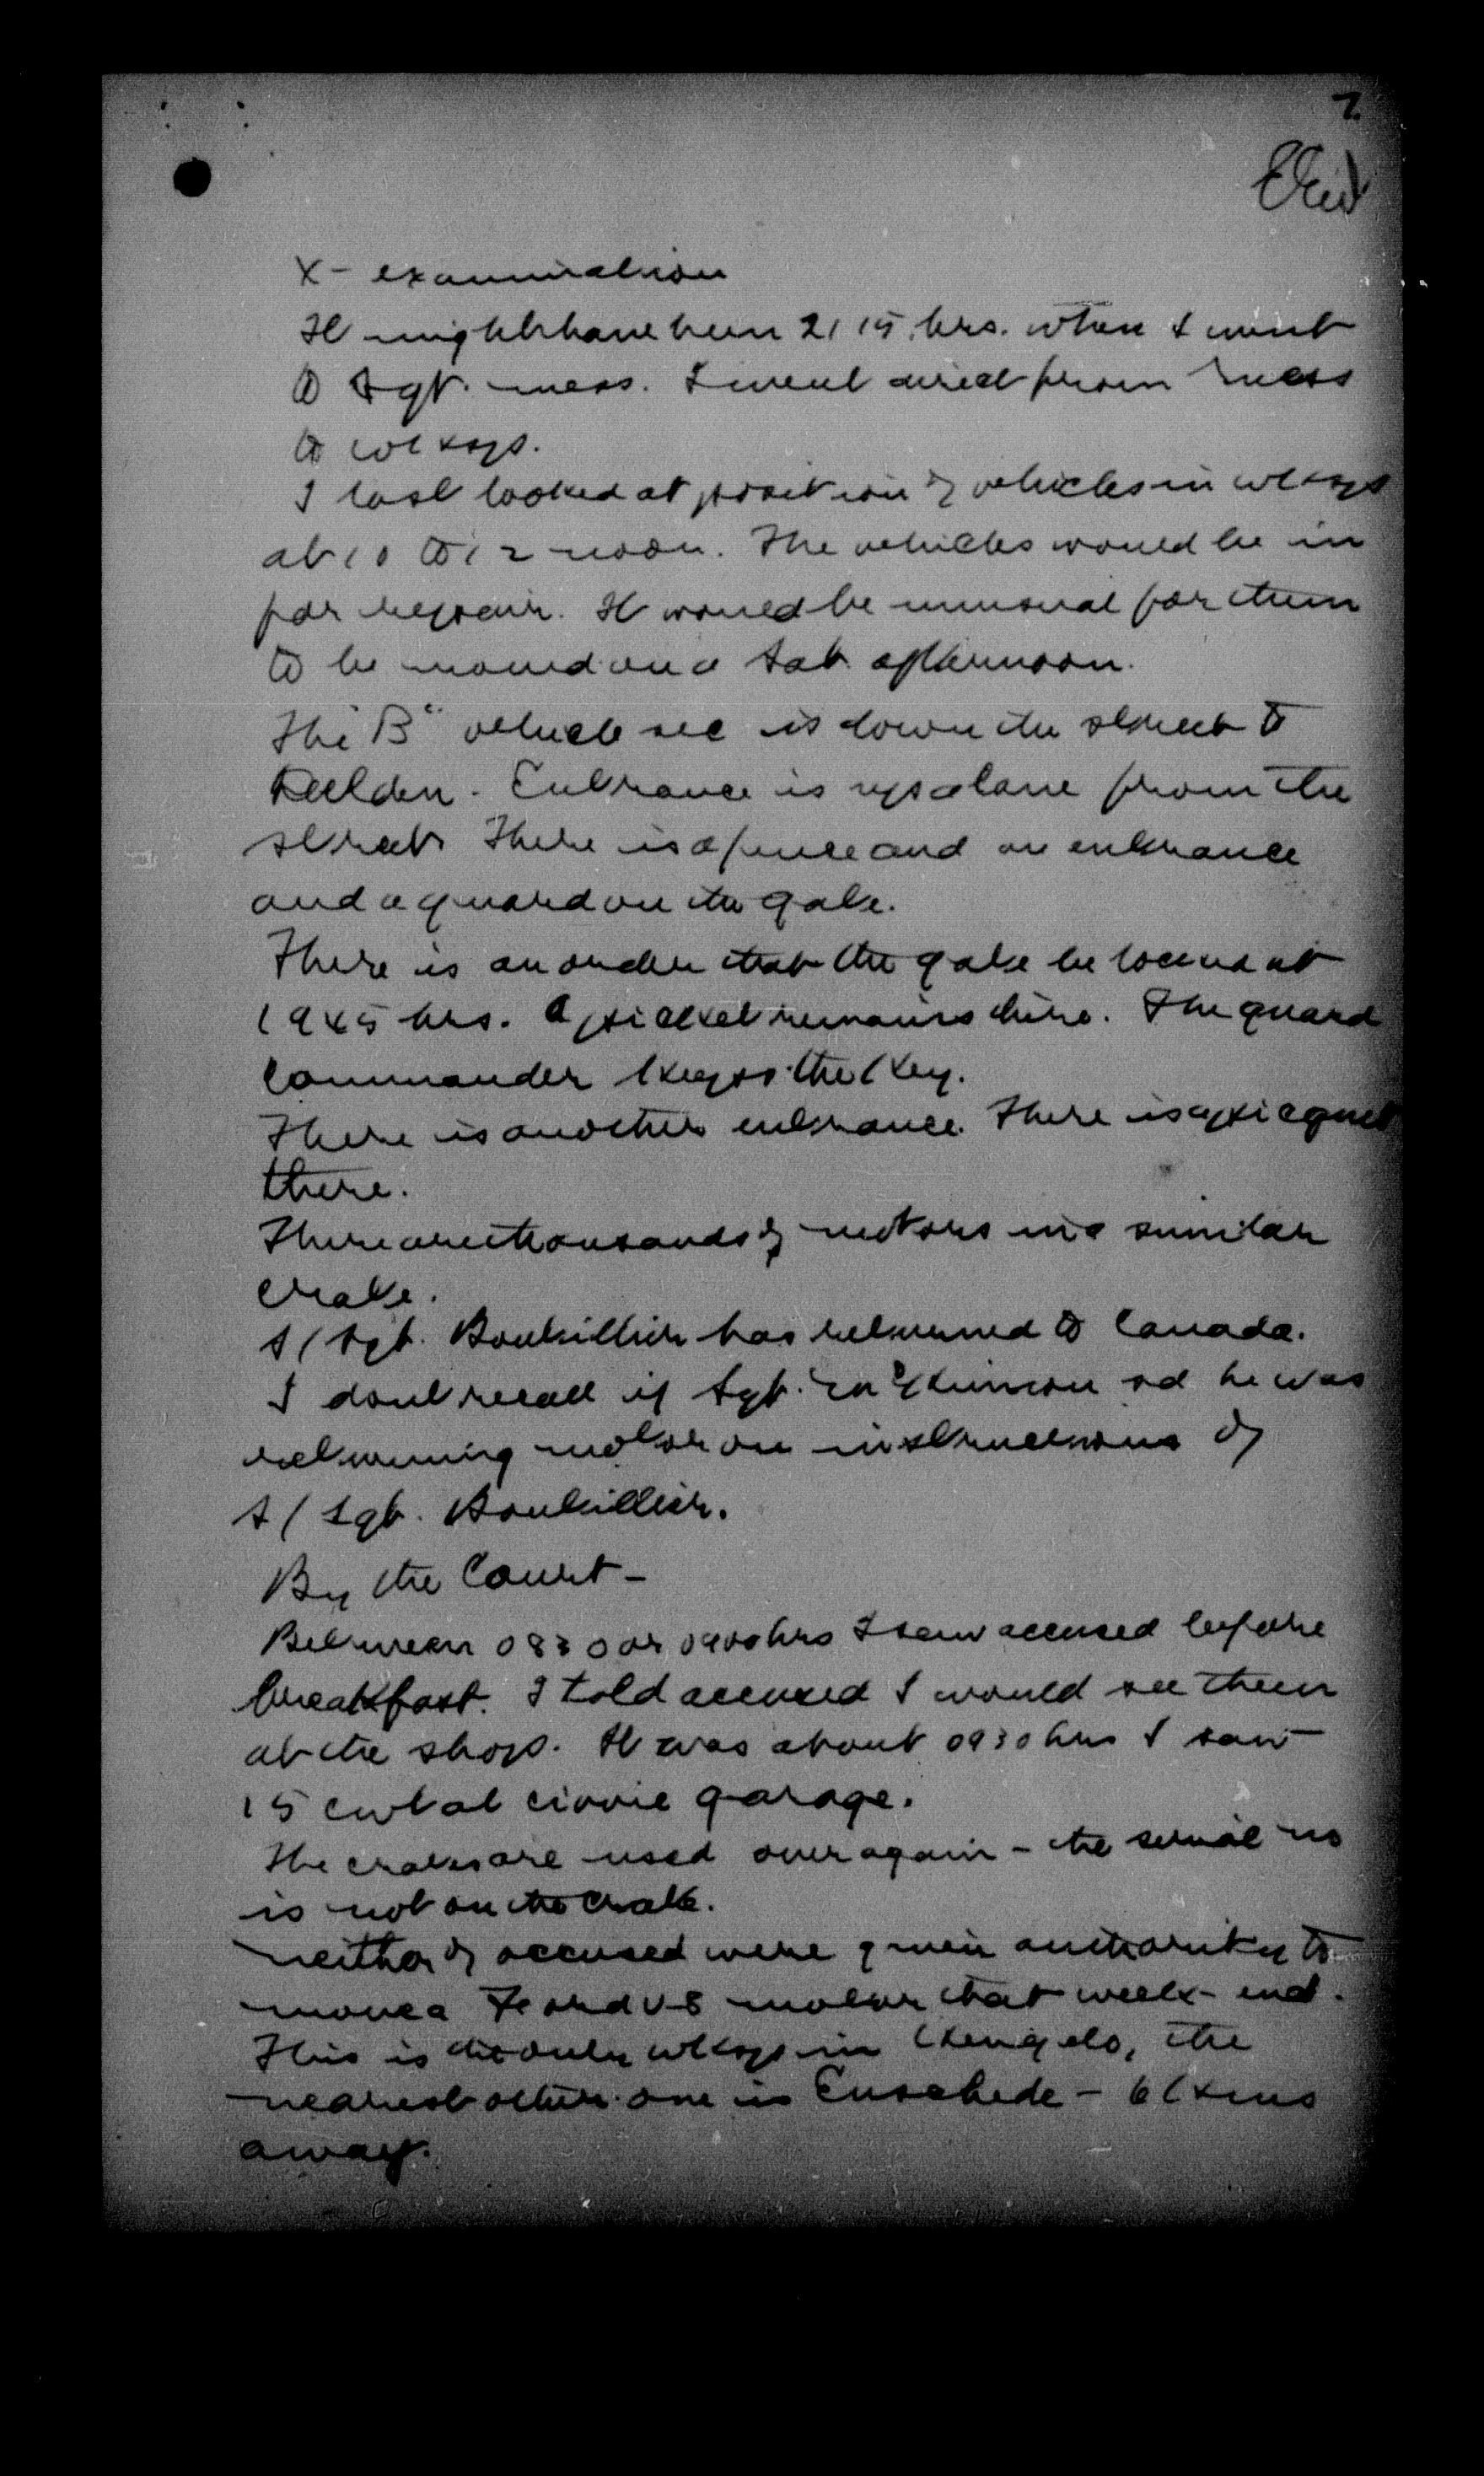 7.
X- examination
It might have been 2115 hrs. when I went
to Sgt. mess. I went direct from mess
to wksps.
I last looked at position of vehicles in wksps
at 10 to 12 noon. The vehicles would be in
for repair. It would be unusual for them
to be moved on a Sat. afternoon.
The "B" vehicle sec is down the street to
Delden. Entrance is up a lane from the
street. There is a fence and an entrance
and a guard on the gate.
There is an order that the gate be locked at
1945 hrs. A picket remains there. The guard
commander keeps the key.
There is another entrance. There is a picquet
there.
There are thousands of motors in a similar
crate.
S/Sgt. Boutillier has returned to Canada.
I dont recall if Sgt. sd he was
returning motor on instructions of
S/Sgt. Boutillier.
By the Court -
Between 0830 or 0900 hrs I saw accused before
breakfast. I told accused I would see them
at the shop. It was about 0930 hrs I saw
15 cwt at civvie garage.
The crates are used over again - the serial no
is not on the crate.
Neither of accused were given authority to
move a Ford V-8 motor that week-end.
This is the only wksp in Hengelo, the
nearest other one is Enschede - 6 kms
away.